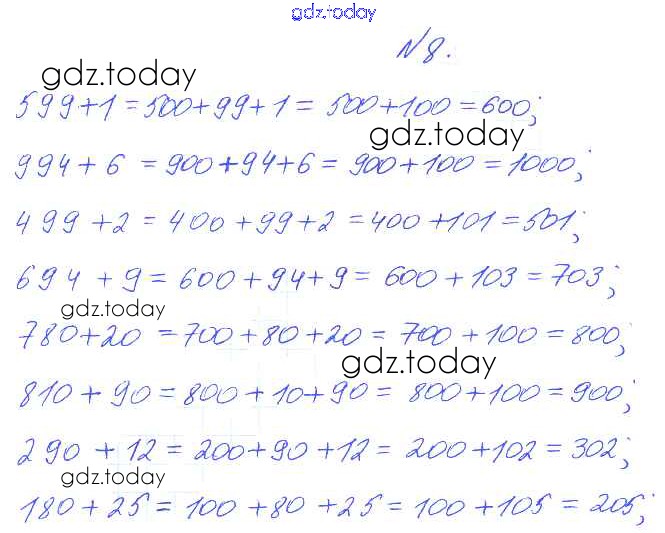 gdz.today
№8.
gdz.today
599+1=500+99+1=500+100=600;
gdz.today
994+6=900+94+6=900+100=1000;
499+2=400+99+2=400+101=501;
694+9=600+94+9=600+103=703;
gdz.today
780+20=700+80+20=700+100=800;
gdz.today
810+90=800+10+90=800+100=900;
290+12=200+90+12=200+102=302;
gdz.today
180+25=100+80+25=100+105=205;